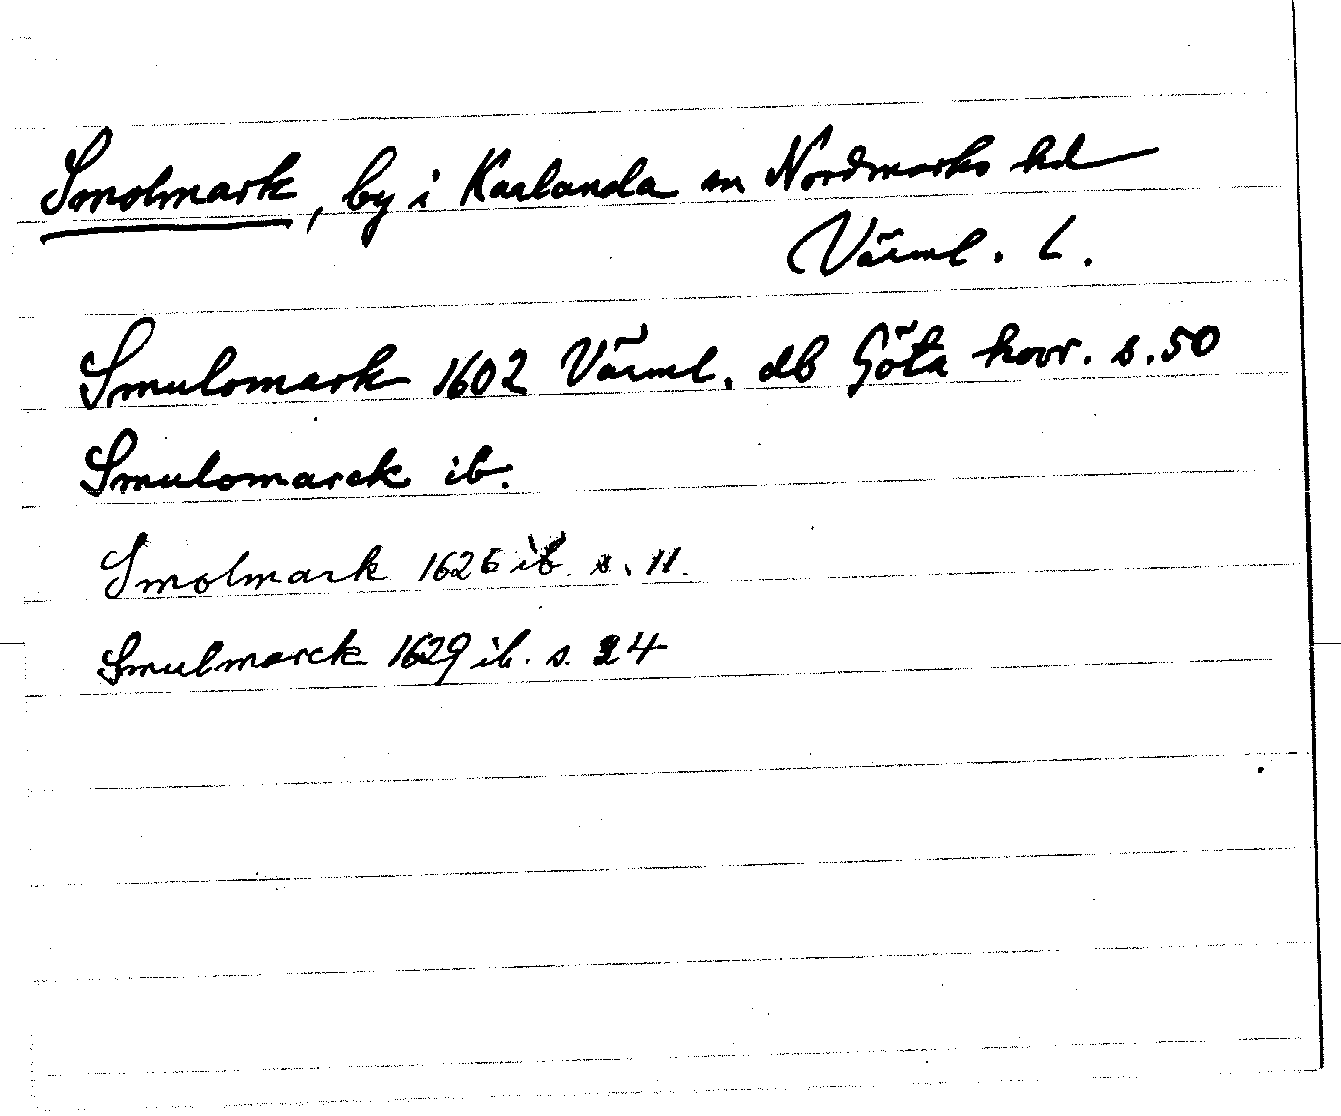 Smolmark, by i Karlanda sn Nordmarks hd
Värml. L.
Smulomark 1602 Värml. db Göta hovr. s. 50
Smulomarck ib.
Smolmark 1626 ib. s. 11.
Smulmarck 1629 ib. s. 24